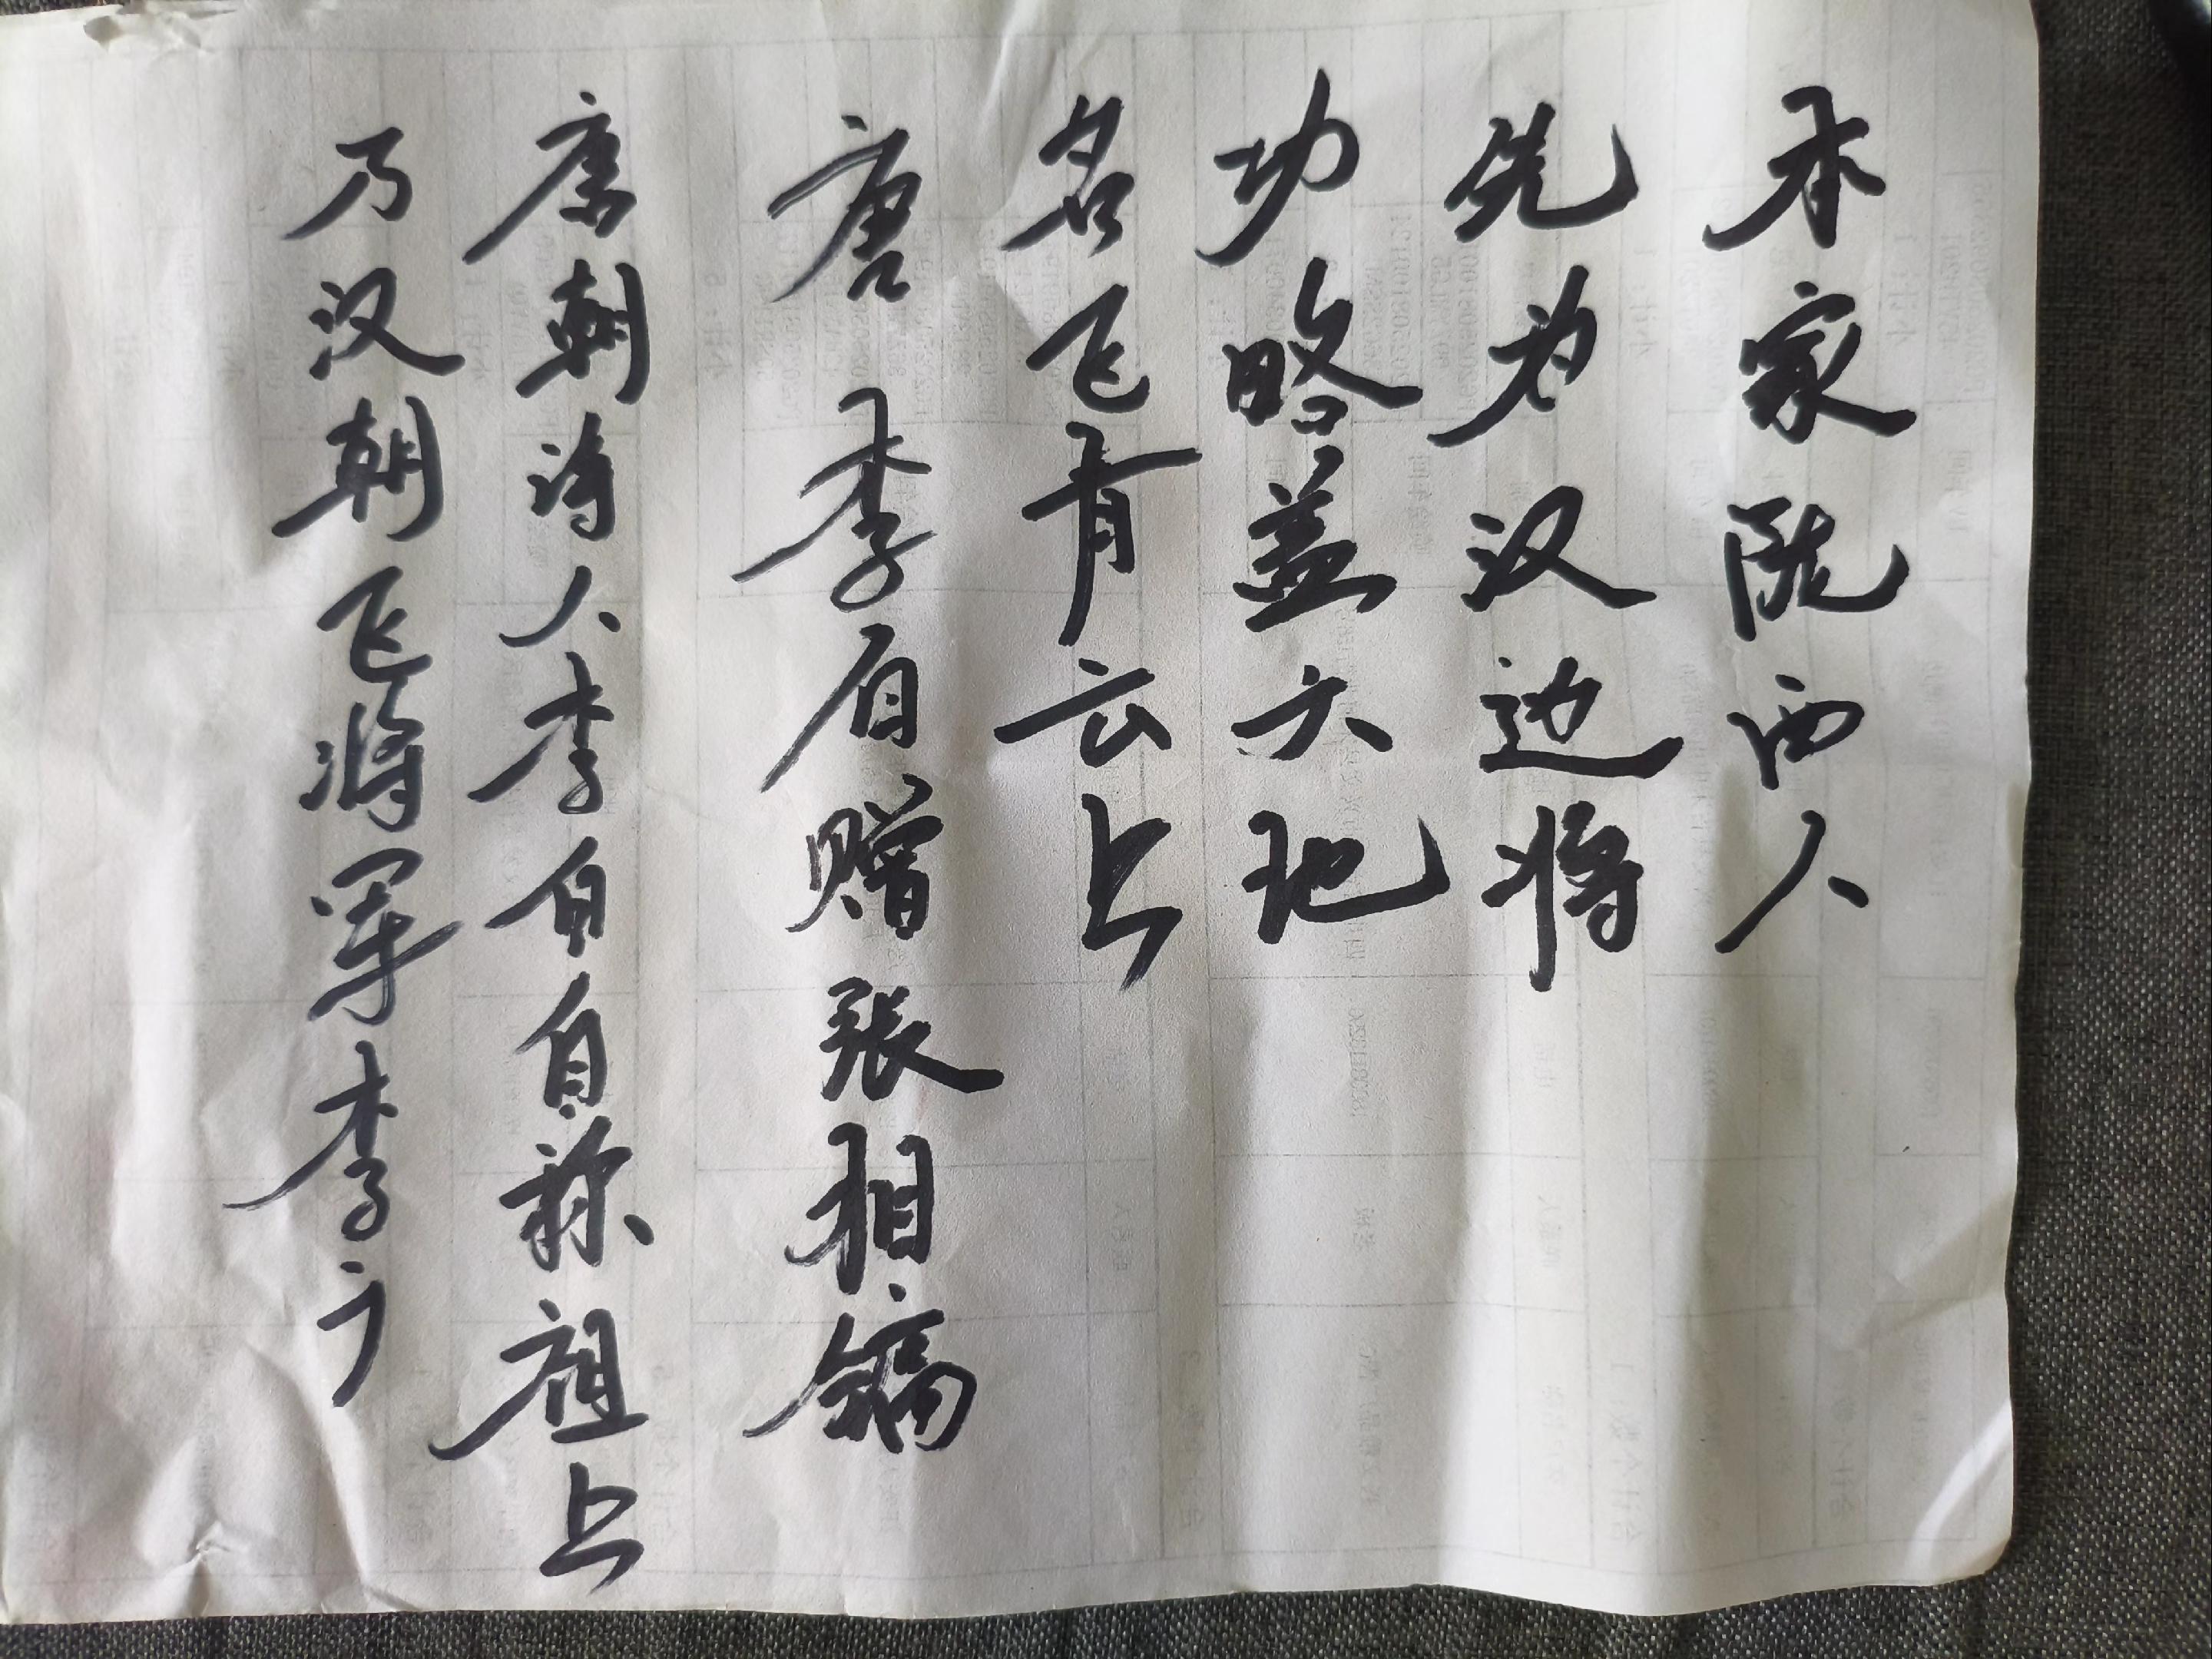 本家陇西人
先为汉边将
功略盖六地
名飞青云上
唐 李白赠张相镐
唐朝诗人李白自称祖上
乃汉朝飞将军李广